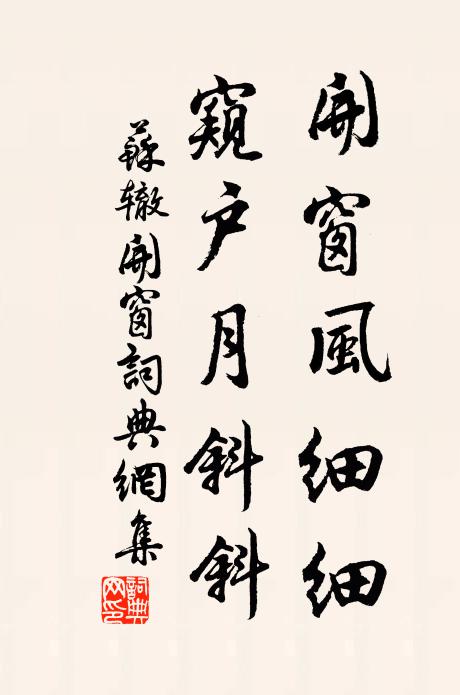 開窗風細細
窺戶月斜斜
蘇辙開窗詞典網集
詞典网印